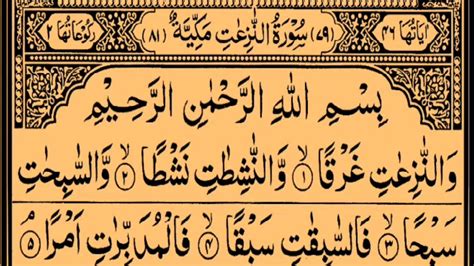 اٰیَاتُهَا ٤٦ (٧٩) سُوْرَةُ النّٰزِعٰتِ مَكِّیَّةٌ (٨١) رُكُوْعَاتُهَا ٢
بِسْمِ اللهِ الرَّحْمٰنِ الرَّحِیْمِ
وَالنّٰزِعٰتِ غَرْقًا ۙ‏﴿١﴾ وَّالنّٰشِطٰتِ نَشْطًا ۙ‏﴿٢﴾ وَّالسّٰبِحٰتِ
سَبْحًا ۙ‏﴿٣﴾ فَالسّٰبِقٰتِ سَبْقًا ۙ‏﴿٤﴾ فَالْمُدَبِّرٰتِ اَمْرًا ۘ‏﴿٥﴾